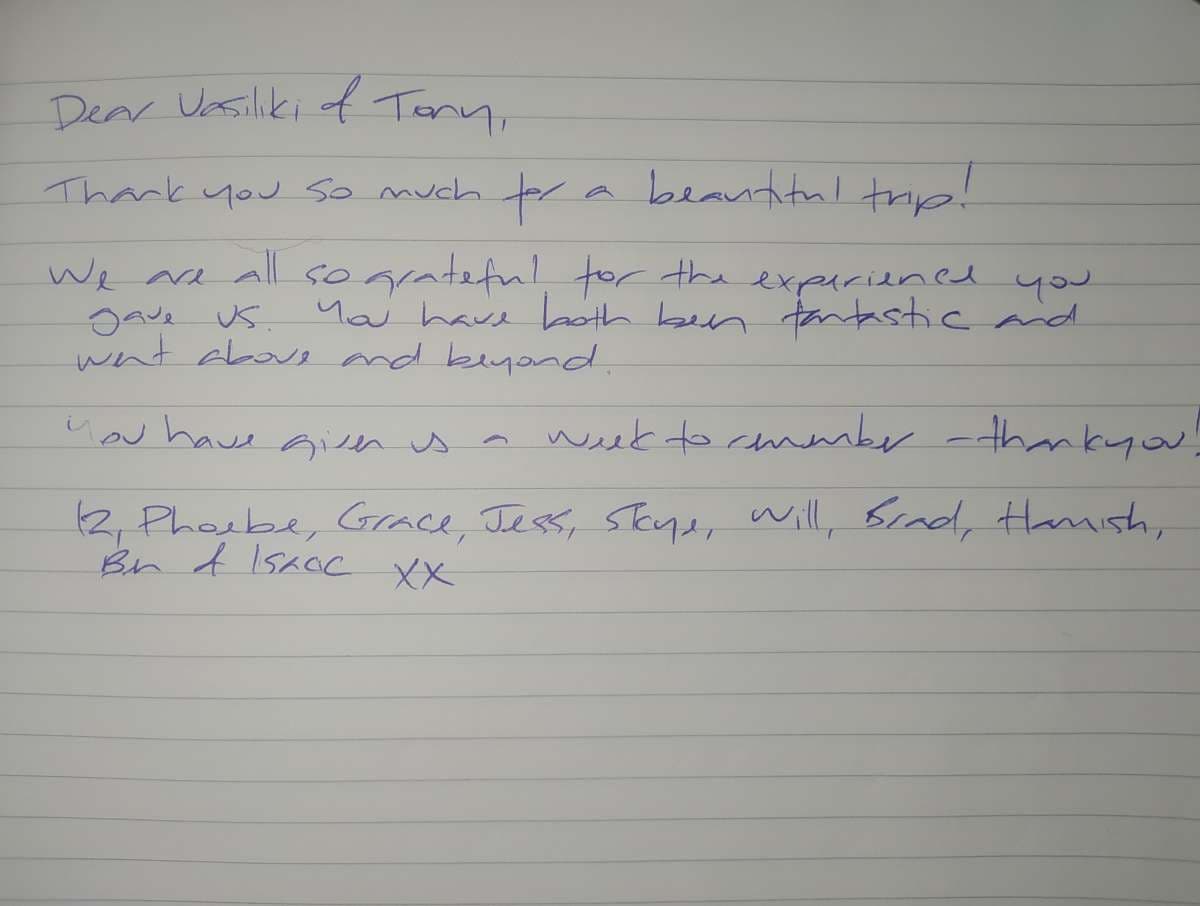 Dear Vasiliki & Tony,
Thank you so much for a beautiful trip!
We are all so grateful for the experience you
gave us. You have both been fantastic and
went above and beyond.
You have given us a week to remember - thankyou!
Phoebe, Grace, Jess, Skye, Will, Brad, Hamish,
Ben & Isaac xx